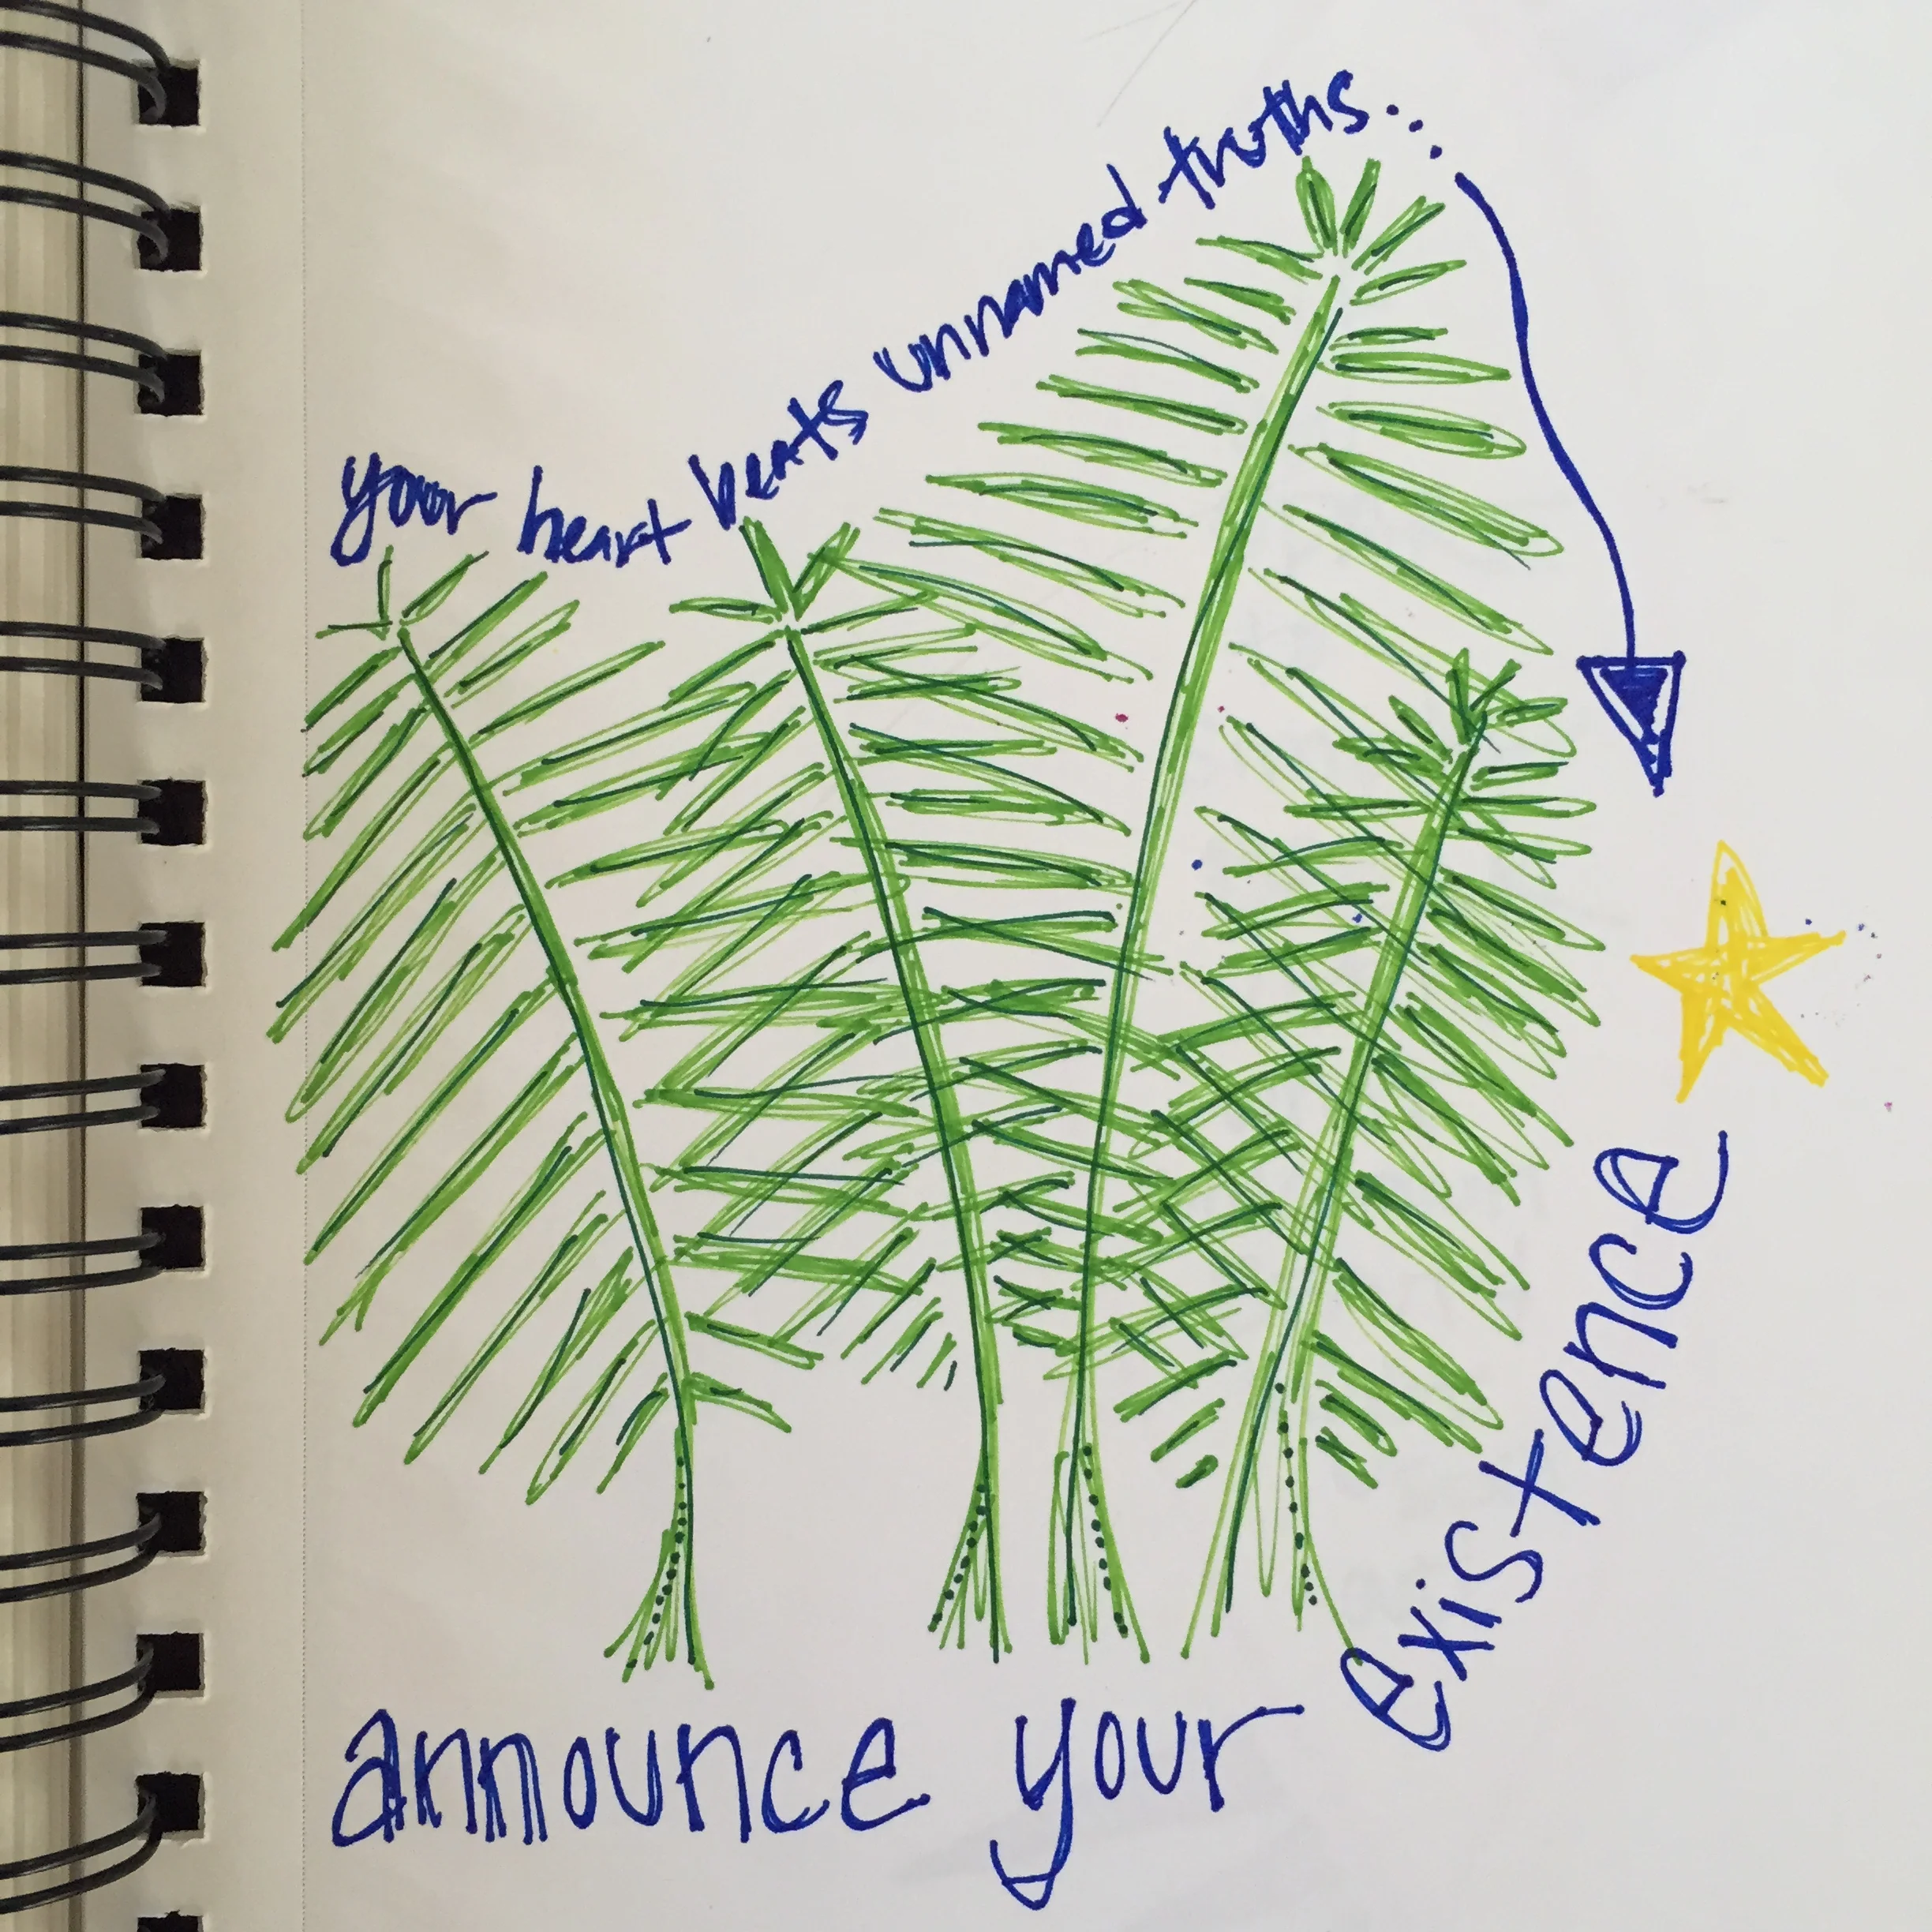 your heart beats unnamed truths...
announce your existence